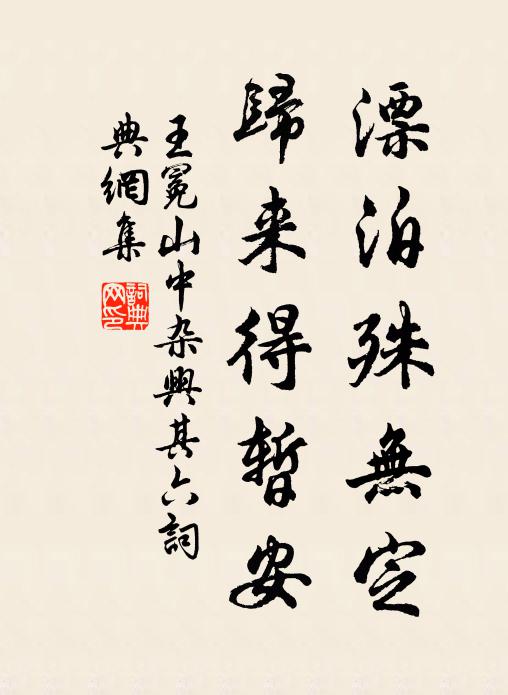 漂泊殊無定
歸来得暫安
王冕山中杂興其六詞
典網集
詞典
网印